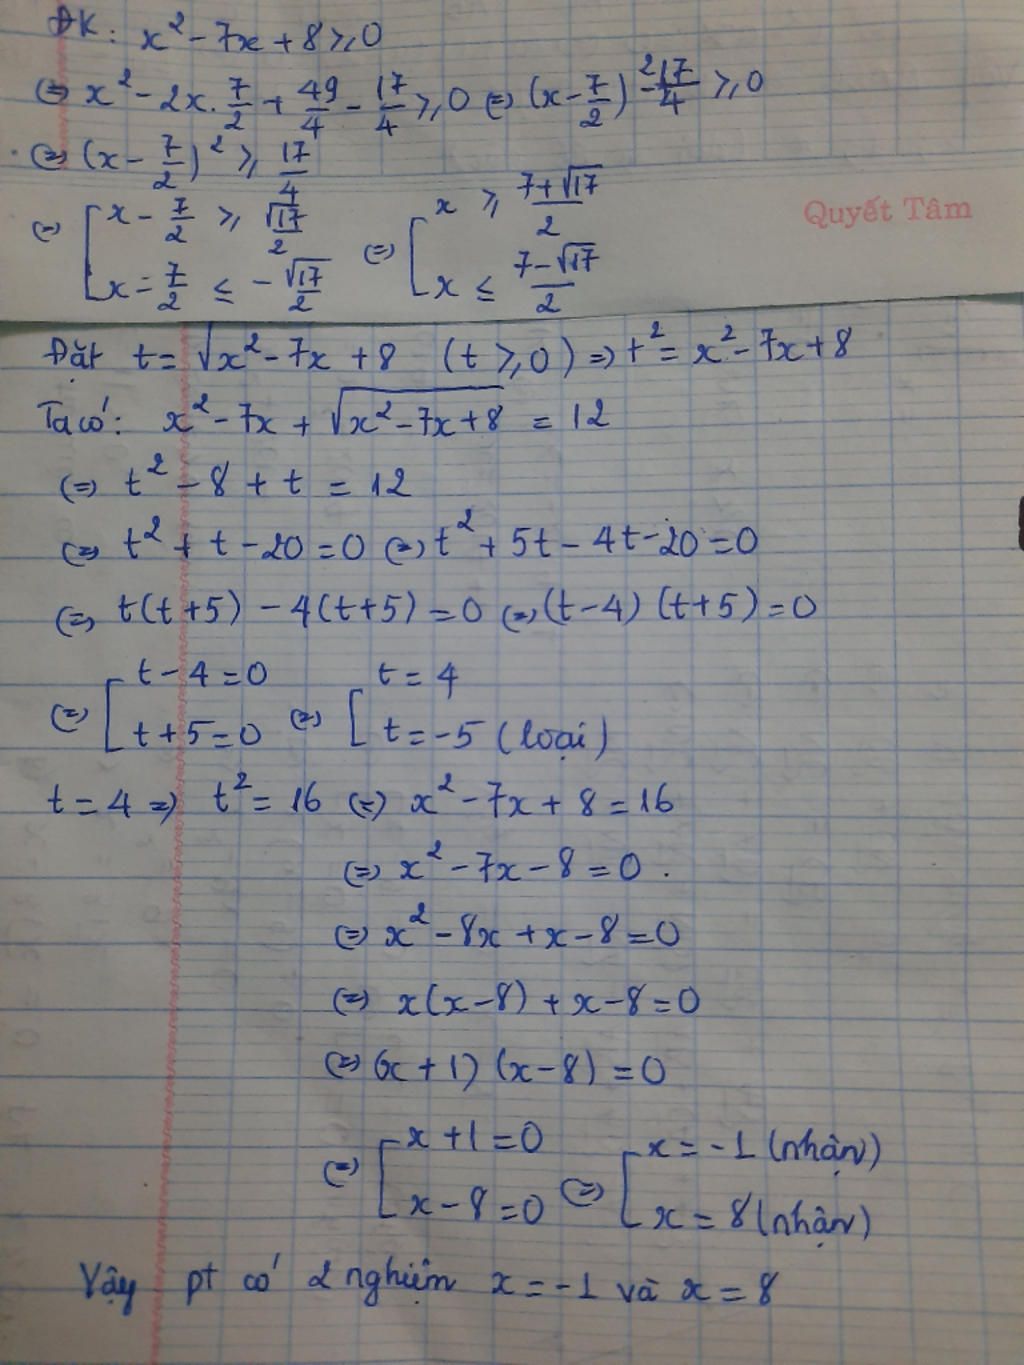 ĐK: x² - 7x + 8 ≥ 0
⇔ x² - 2x. 7/2 + 49/4 - 17/4 ≥ 0 ⇔ (x - 7/2)² - 17/4 ≥ 0
⇔ (x - 7/2)² ≥ 17/4
⇔ [ x - 7/2 ≥ √17/2 ⇔ [ x ≥ (7+√17)/2
x = 7/2 ≤ - √17/2 x ≤ (7-√17)/2
Quyết Tâm
Đặt t = √(x² - 7x + 8) (t ≥ 0) ⇒ t² = x² - 7x + 8
Ta có: x² - 7x + √(x² - 7x + 8) = 12
⇔ t² - 8 + t = 12
⇔ t² + t - 20 = 0 ⇔ t² + 5t - 4t - 20 = 0
⇔ t(t+5) - 4(t+5) = 0 ⇔ (t-4) (t+5) = 0
⇔ [ t - 4 = 0 ⇔ [ t = 4
t + 5 = 0 t = -5 (loại)
t = 4 ⇒ t² = 16 ⇔ x² - 7x + 8 = 16
⇔ x² - 7x - 8 = 0 .
⇔ x² - 8x + x - 8 = 0
⇔ x(x-8) + x - 8 = 0
⇔ (x + 1) (x - 8) = 0
⇔ [ x + 1 = 0 ⇔ [ x = -1 (nhận)
x - 8 = 0 x = 8 (nhận)
Vậy pt có 2 nghiệm x = -1 và x = 8